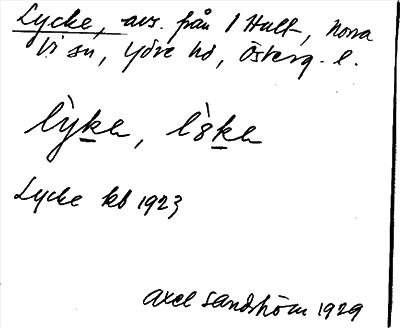 Lycke, avs. från 1 Hult, Norra
Vi sn, Ydre hd, Österg. l.
lỳka, lɜ̀ka
Lycke kb 1923
Axel Sandström 1929